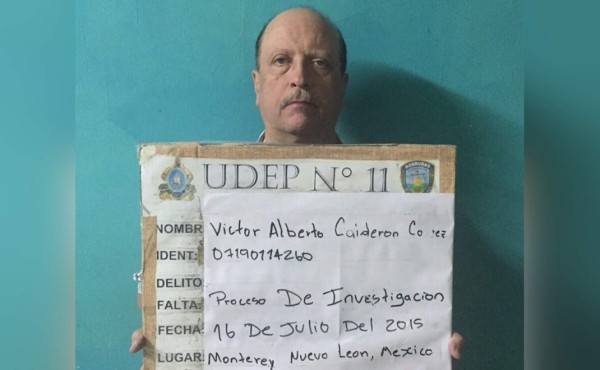 UDEP N° 11
NOMBR Victor Alberto Calderon
IDENT: 07190114260
DELITO
FALTA: Proceso De Investigacion
FECHA: 16 De Julio Del 2015
LUGAR: Monterey Nuevo Leon, Mexico